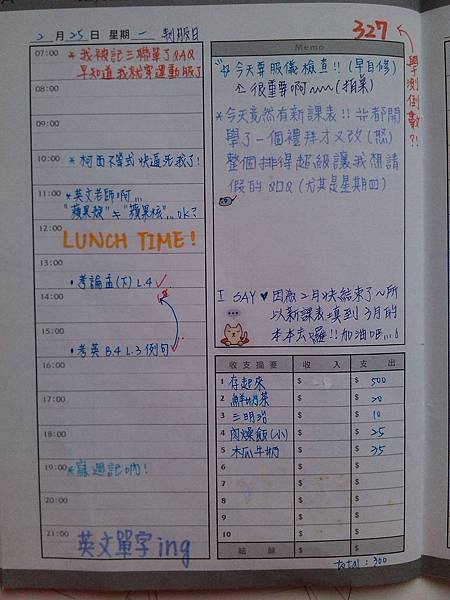 2 月 25 日 星期 一 制服日
327
學測倒數?!
07:00
*我被記三聯單了QAQ
早知道我就穿運動服了
08:00
09:00
10:00
*柯西不等式快逼死我了!
11:00
*英文老師啊…
"蘋果核"…ok?
12:00
LUNCH TIME!
13:00
•考論孟(下) L4
14:00
15:00
•考英B4 L.3 例句
16:00
17:00
18:00
19:00
*寫週記喲!
20:00
21:00
英文單字ing
Memo
今天要服儀檢查!! (早自修)
很重要啊~~~(拍桌)
*今天竟然有新課表!! 都開
學了一個禮拜才又改(怒)
整個排得超級讓我想請
假的 (尤其是星期四)
I SAY ♥ 因為2月快結束了~所
以新課表填到3月的
本本去囉!!加油吧…!
收支摘要 收 入 支 出
1 存起來 $ $ 500
2 鮮奶茶 $ $ 20
3 三明治 $ $ 10
4 肉燥飯(小) $ $ 25
5 木瓜牛奶 $ $ 35
6 $ $
7 $ $
8 $ $
9 $ $
10 $ $
結 餘 $ $
total : 300